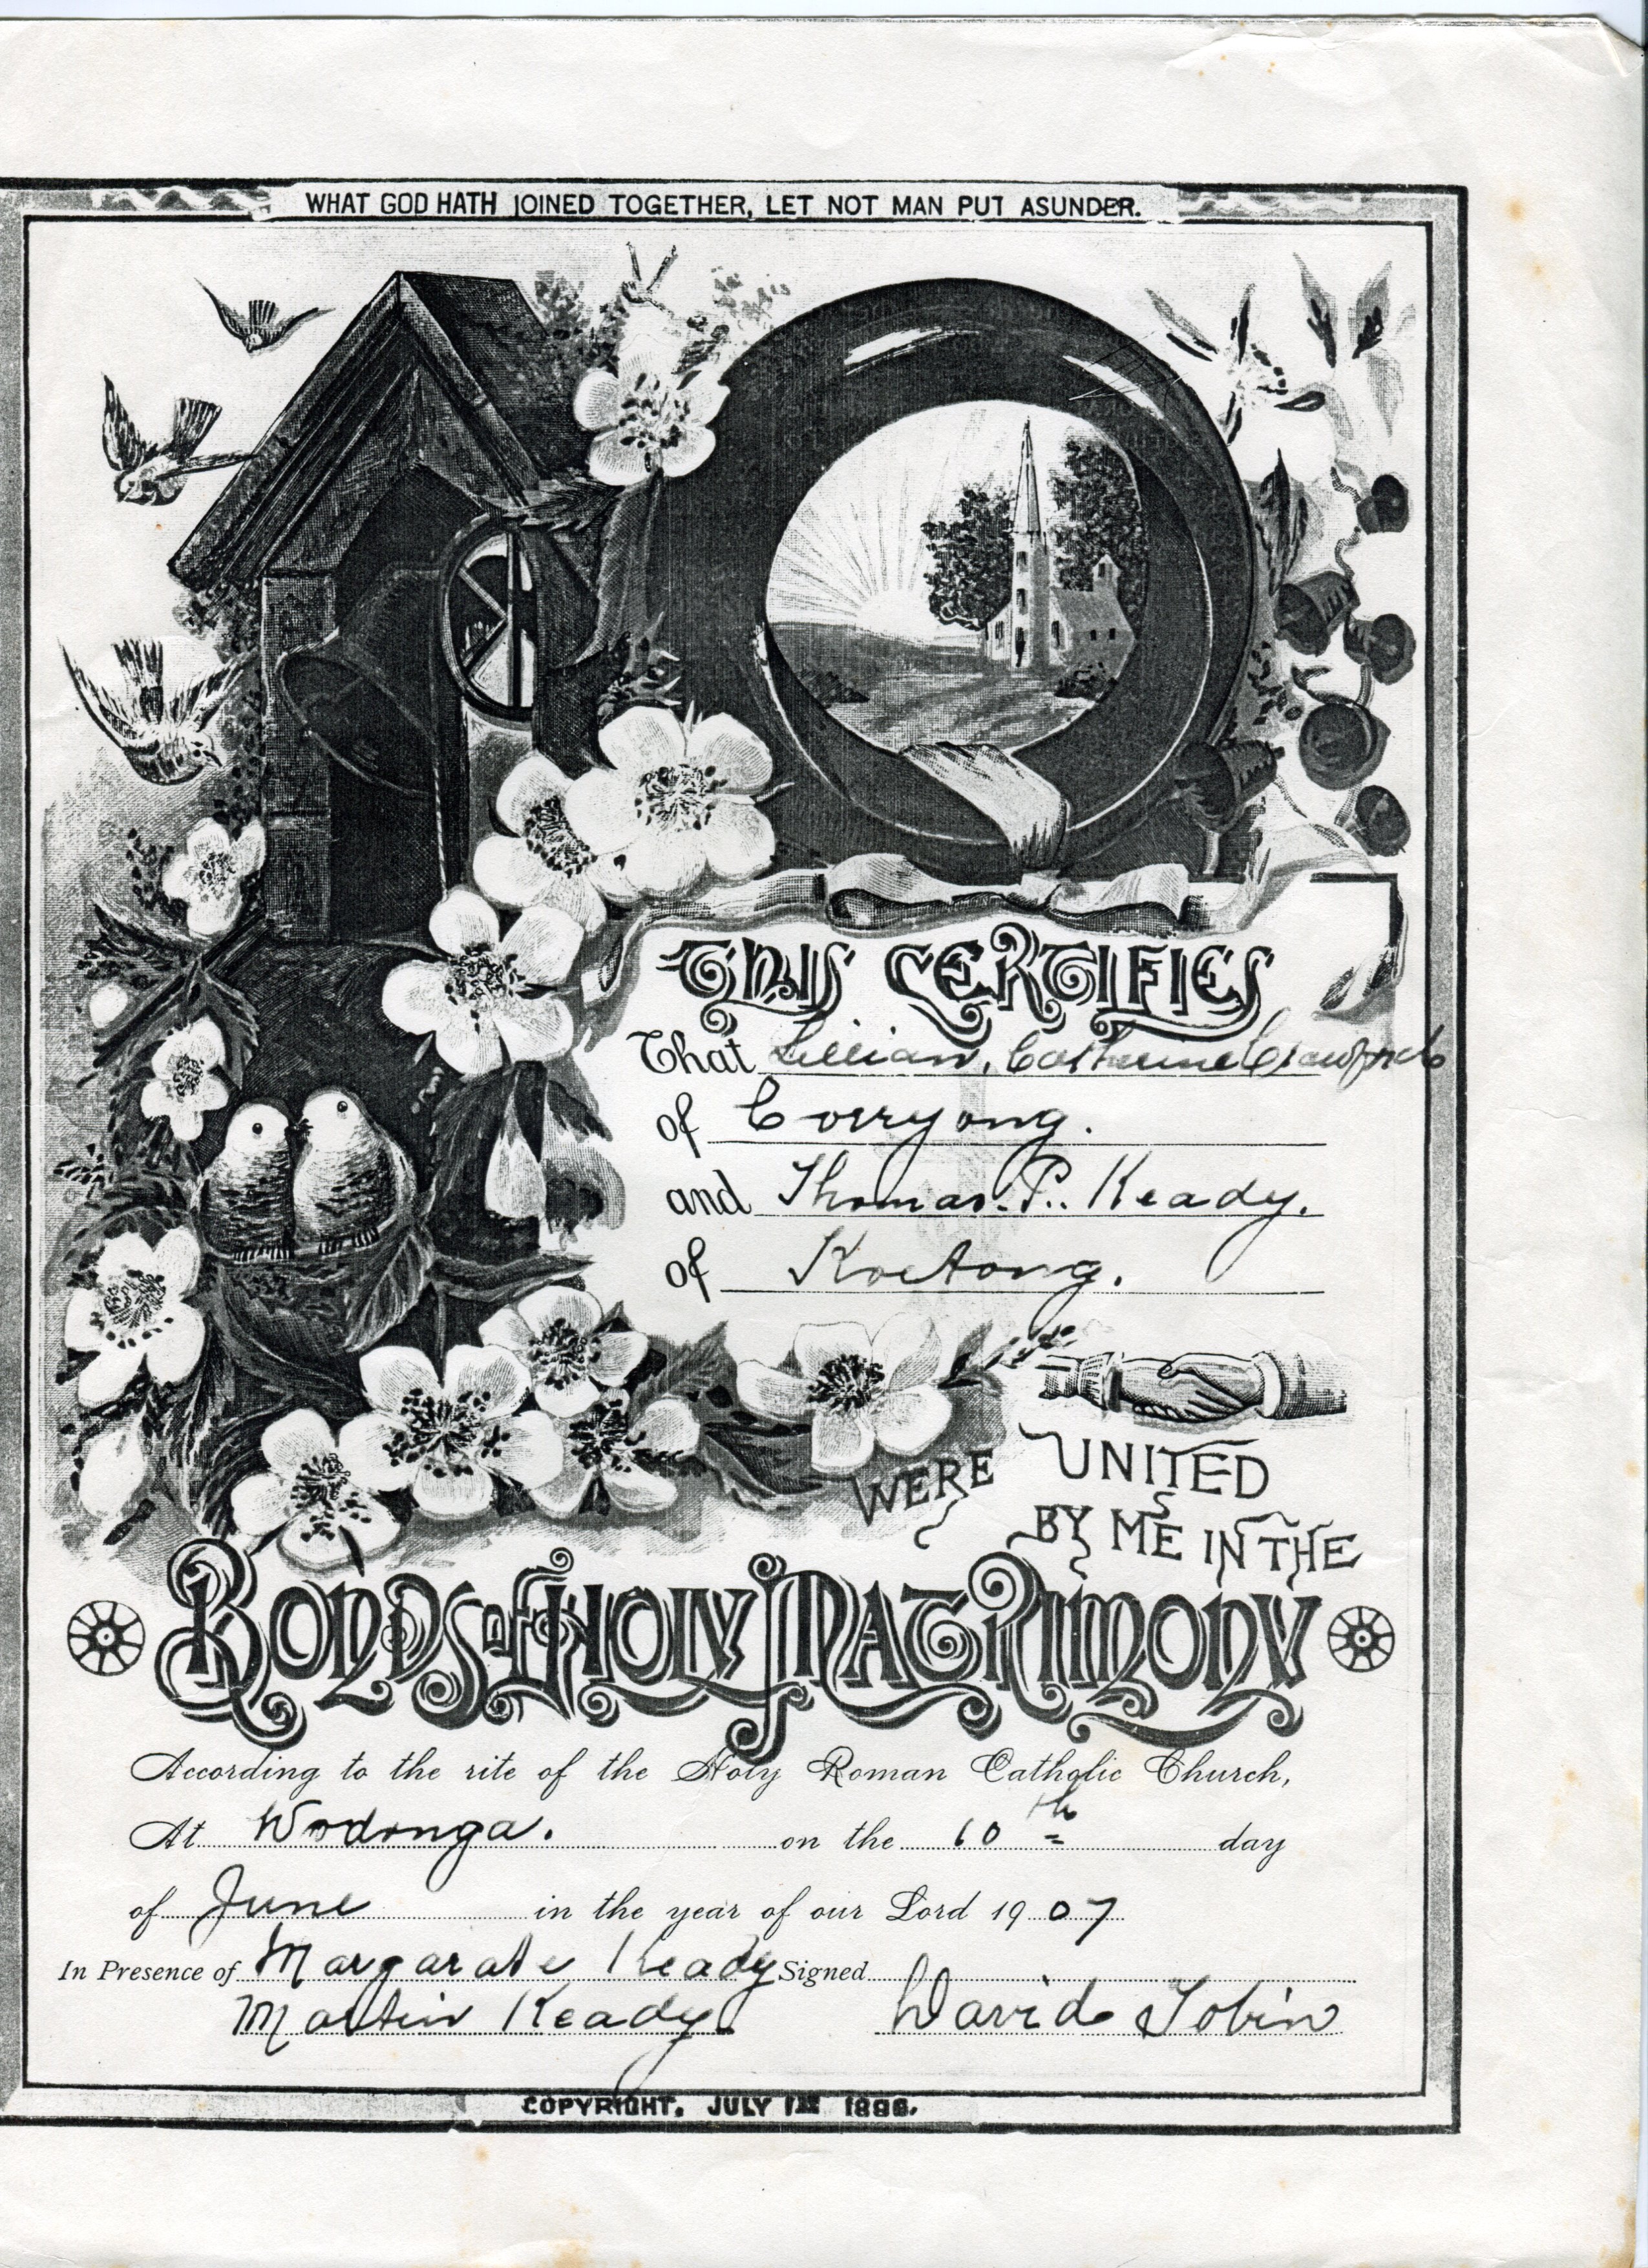 WHAT GOD HATH JOINED TOGETHER, LET NOT MAN PUT ASUNDER.
THIS CERTIFIES
That Lillian, Catherine Crawford
of Corryong.
and Thomas. P.. Keady.
of Koetong.
WERE UNITED
BY ME IN THE
BONDS OF HOLY MATRIMONY
According to the rite of the Holy Roman Catholic Church,
At Wodonga. on the 10th day
of June in the year of our Lord 1907
In Presence of Margarate Keady Signed
Martin Keady David Tobin
COPYRIGHT, JULY 1st 1896.